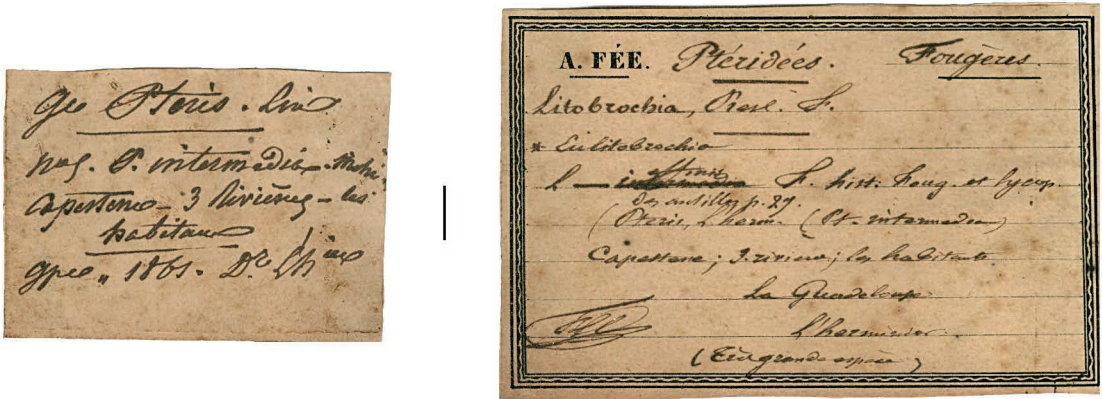 Ge Pteris. Lin
n°5. P. intermedia.
Capesterre - 3 Rivières - les
habitans
Gpee „ 1861. Dr L'h
A. FÉE. Ptéridées. Fougères.
Litobrochia, Presl. F.
* Eulitobrochia
L — affinis F. hist. Foug. et lycop
intermedia
des antilles p. 29.
(Pteris, L'herm. (Pt. intermedia)
Capesterre; 3. rivières; les habitants.
La Guadeloupe
L'herminier.
(Très grande espèce)